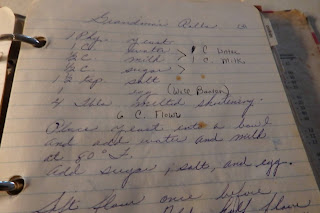 Grandma's Rolls
1 Pkg. yeast
1 C. water } C Water
1/2 C. milk 1 C. Milk
1/2 C. sugar
1/2 tsp. salt
1 egg (Well Beaten)
4 Tbls. melted shortening.
6 C. Flour
Place yeast into a bowl
and add water and milk
at 80°F.
Add sugar, salt, and egg.
Sift flour once before
half flour